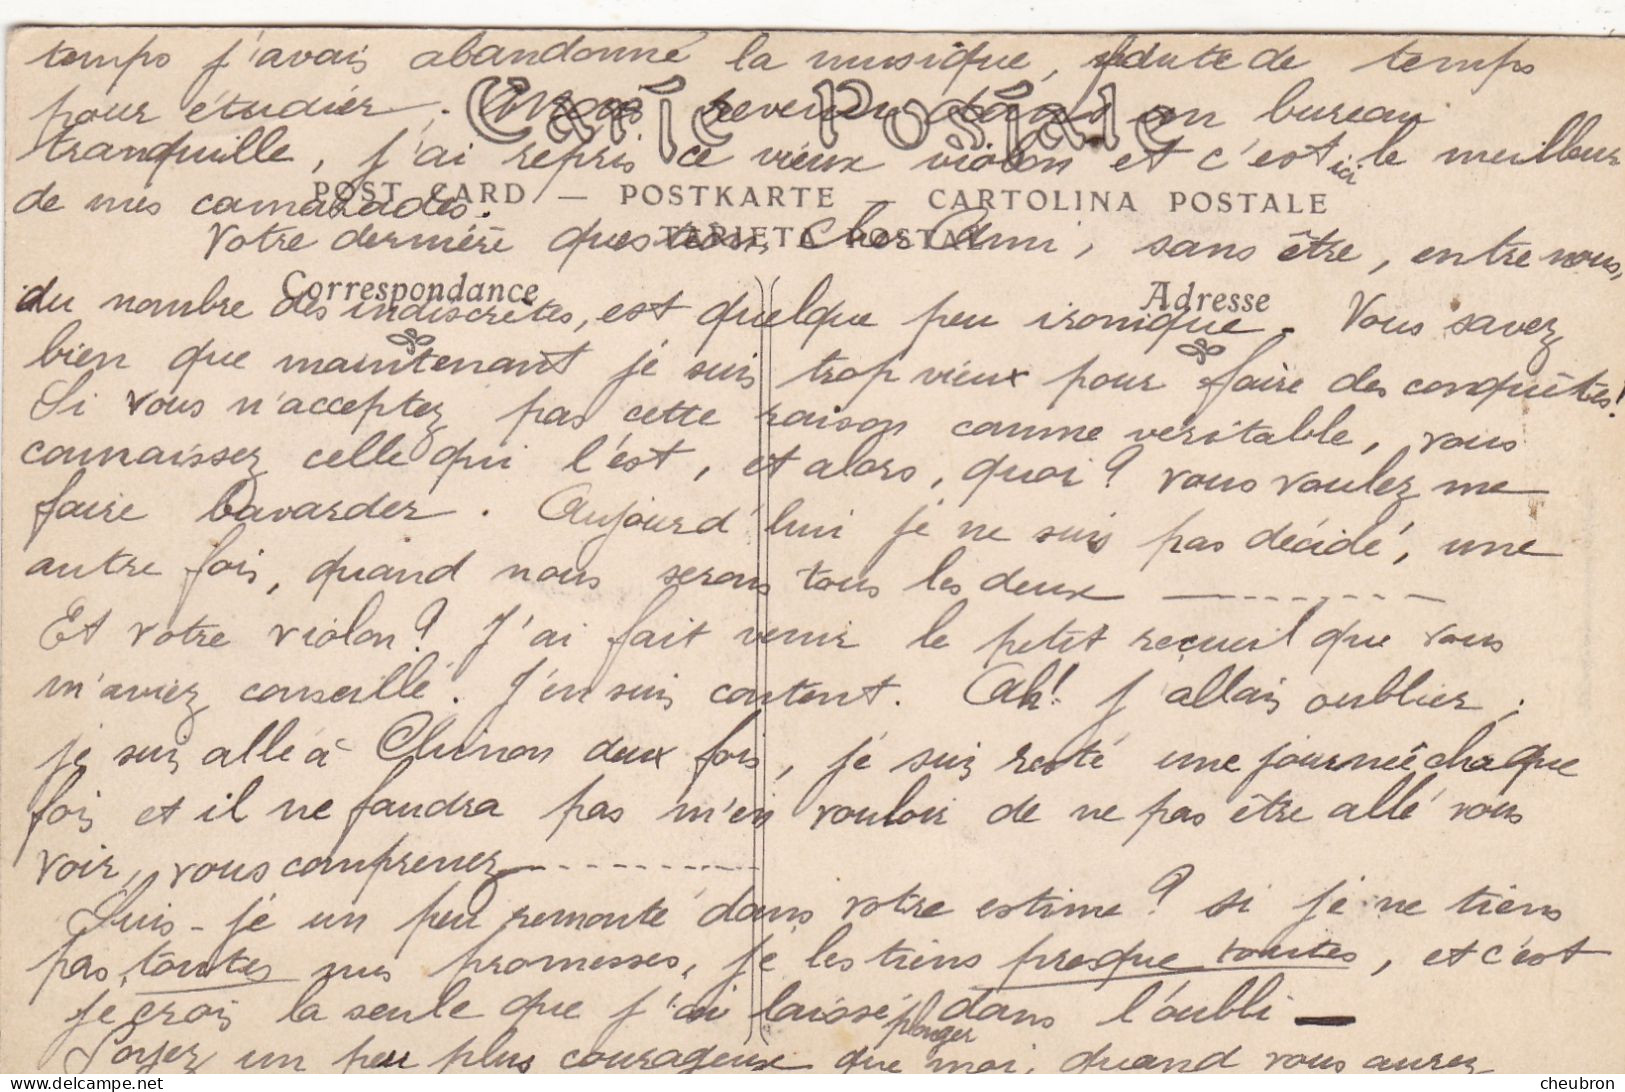 temps j'avais abandonné la musique, faute de temps
Carte Postale
pour étudier. Mais revenu dans un bureau
tranquille, j'ai repris ce vieux violon et c'est ici le meilleur
POST CARD — POSTKARTE — CARTOLINA POSTALE
de mes camarades.
TARJETA POSTAL
Votre dernière question, Cher Ami, sans être, entre nous,
Correspondance
Adresse
du nombre des indiscrètes, est quelque peu ironique. Vous savez
bien que maintenant je suis trop vieux pour faire des conquêtes!
Si vous n'acceptez pas cette raison comme véritable, vous
connaissez celle qui l'est, et alors, quoi? vous voulez me
faire bavarder. Aujourd'hui je ne suis pas décidé, une
autre fois, quand nous serons tous les deux ---------
Et votre violon? J'ai fait venir le petit recueil que vous
m'aviez conseillé. J'en suis content. Ah! j'allais oublier;
je suis allé à Chinon deux fois, je suis resté une journée chaque
fois et il ne faudra pas m'en vouloir de ne pas être allé vous
voir, vous comprenez ----------
Suis-je un peu remonté dans votre estime? si je ne tiens
pas toutes mes promesses, je les tiens presque toutes, et c'est
je crois la seule que j'ai laissé plonger dans l'oubli —
Soyez un peu plus courageux que moi, quand vous aurez
cheubron - delcampe.net